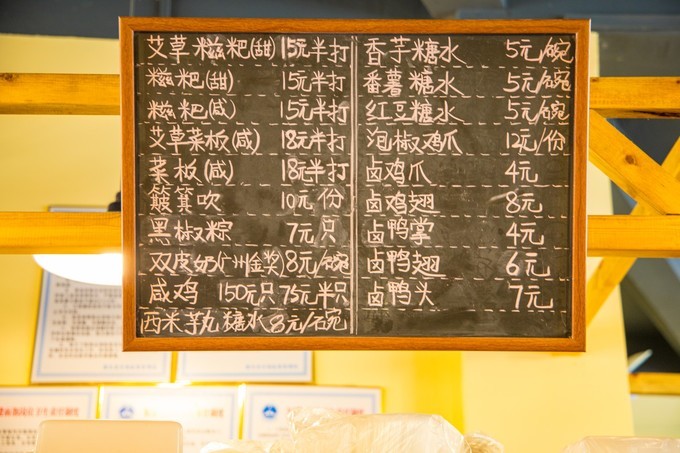 艾草糍粑(甜) 15元半打
糍粑(甜) 15元半打
糍粑(咸) 15元半打
艾草菜板(咸) 18元半打
菜板(咸) 18元半打
簸箕吹 10元份
黑椒粽 7元只
双皮奶(广州金奖)8元/碗
咸鸡 150元只 75元半只
西米芋丸糖水 8元/碗
香芋糖水 5元/碗
番薯糖水 5元/碗
红豆糖水 5元/碗
泡椒鸡爪 12元/份
卤鸡爪 4元
卤鸡翅 8元
卤鸭掌 4元
卤鸭翅 6元
卤鸭头 7元